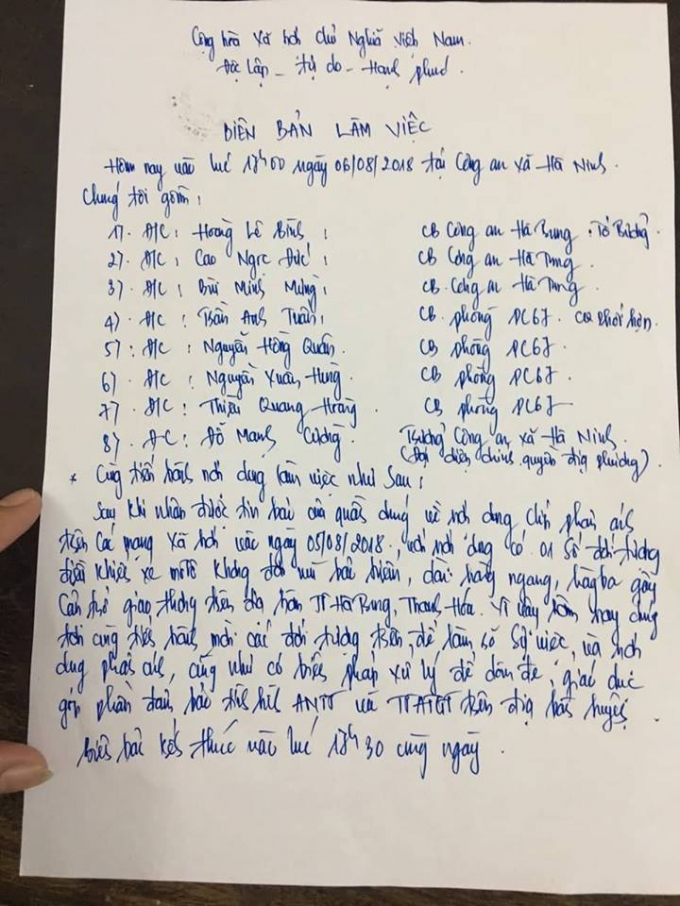 Cộng hòa xã hội chủ Nghĩa Việt Nam.
Độc Lập - tự do - Hạnh phúc.
BIÊN BẢN LÀM VIỆC
Hôm nay vào lúc 17h00 ngày 06/08/2018 tại Công an xã Hà Ninh.
Chúng tôi gồm:
1). Đ/C: Hoàng Lê Bình: CB Công an Hà Trung. Tổ trưởng.
2). Đ/C: Cao Ngọc Đức: CB Công an Hà Trung.
3) Đ/C: Bùi Minh Mưng: CB Công an Hà Trung
4) Đ/C: Trần Anh Tuấn: CB. phòng PC67. CQ phối hợp.
5): Đ/C: Nguyễn Hồng Quân. CB phòng PC67.
6) Đ/C: Nguyễn Xuân Hùng. CB phòng PC67.
7) Đ/C: Thiều Quang Hoàng. CB phòng PC67
8). Đ-C: Đỗ Mạnh Cường. Trưởng Công an xã Hà Ninh.
(Đại diện chính quyền địa phương).
* Cùng tiến hành nội dung làm việc như sau:
Sau khi nhận được tin báo của quần chúng về nội dung Clip phản ánh
trên các mạng xã hội vào ngày 05/08/2018, với nội dung có 01 số đối tượng
điều khiển xe mô tô không đội mũ bảo hiểm, dàn hàng ngang, hàng ba gây
Cản trở giao thông trên địa bàn TT Hà Trung, Thanh Hóa. Vì vậy hôm nay chúng
tôi cùng tiến hành mời các đối tượng trên, để làm rõ sự việc, và nội
dung phản ánh, cũng như có biện pháp xử lý để răn đe, giáo dục
góp phần đảm bảo tình hình ANTT và TTATGT trên địa bàn huyện.
biên bản kết thúc vào lúc 17h30 cùng ngày.